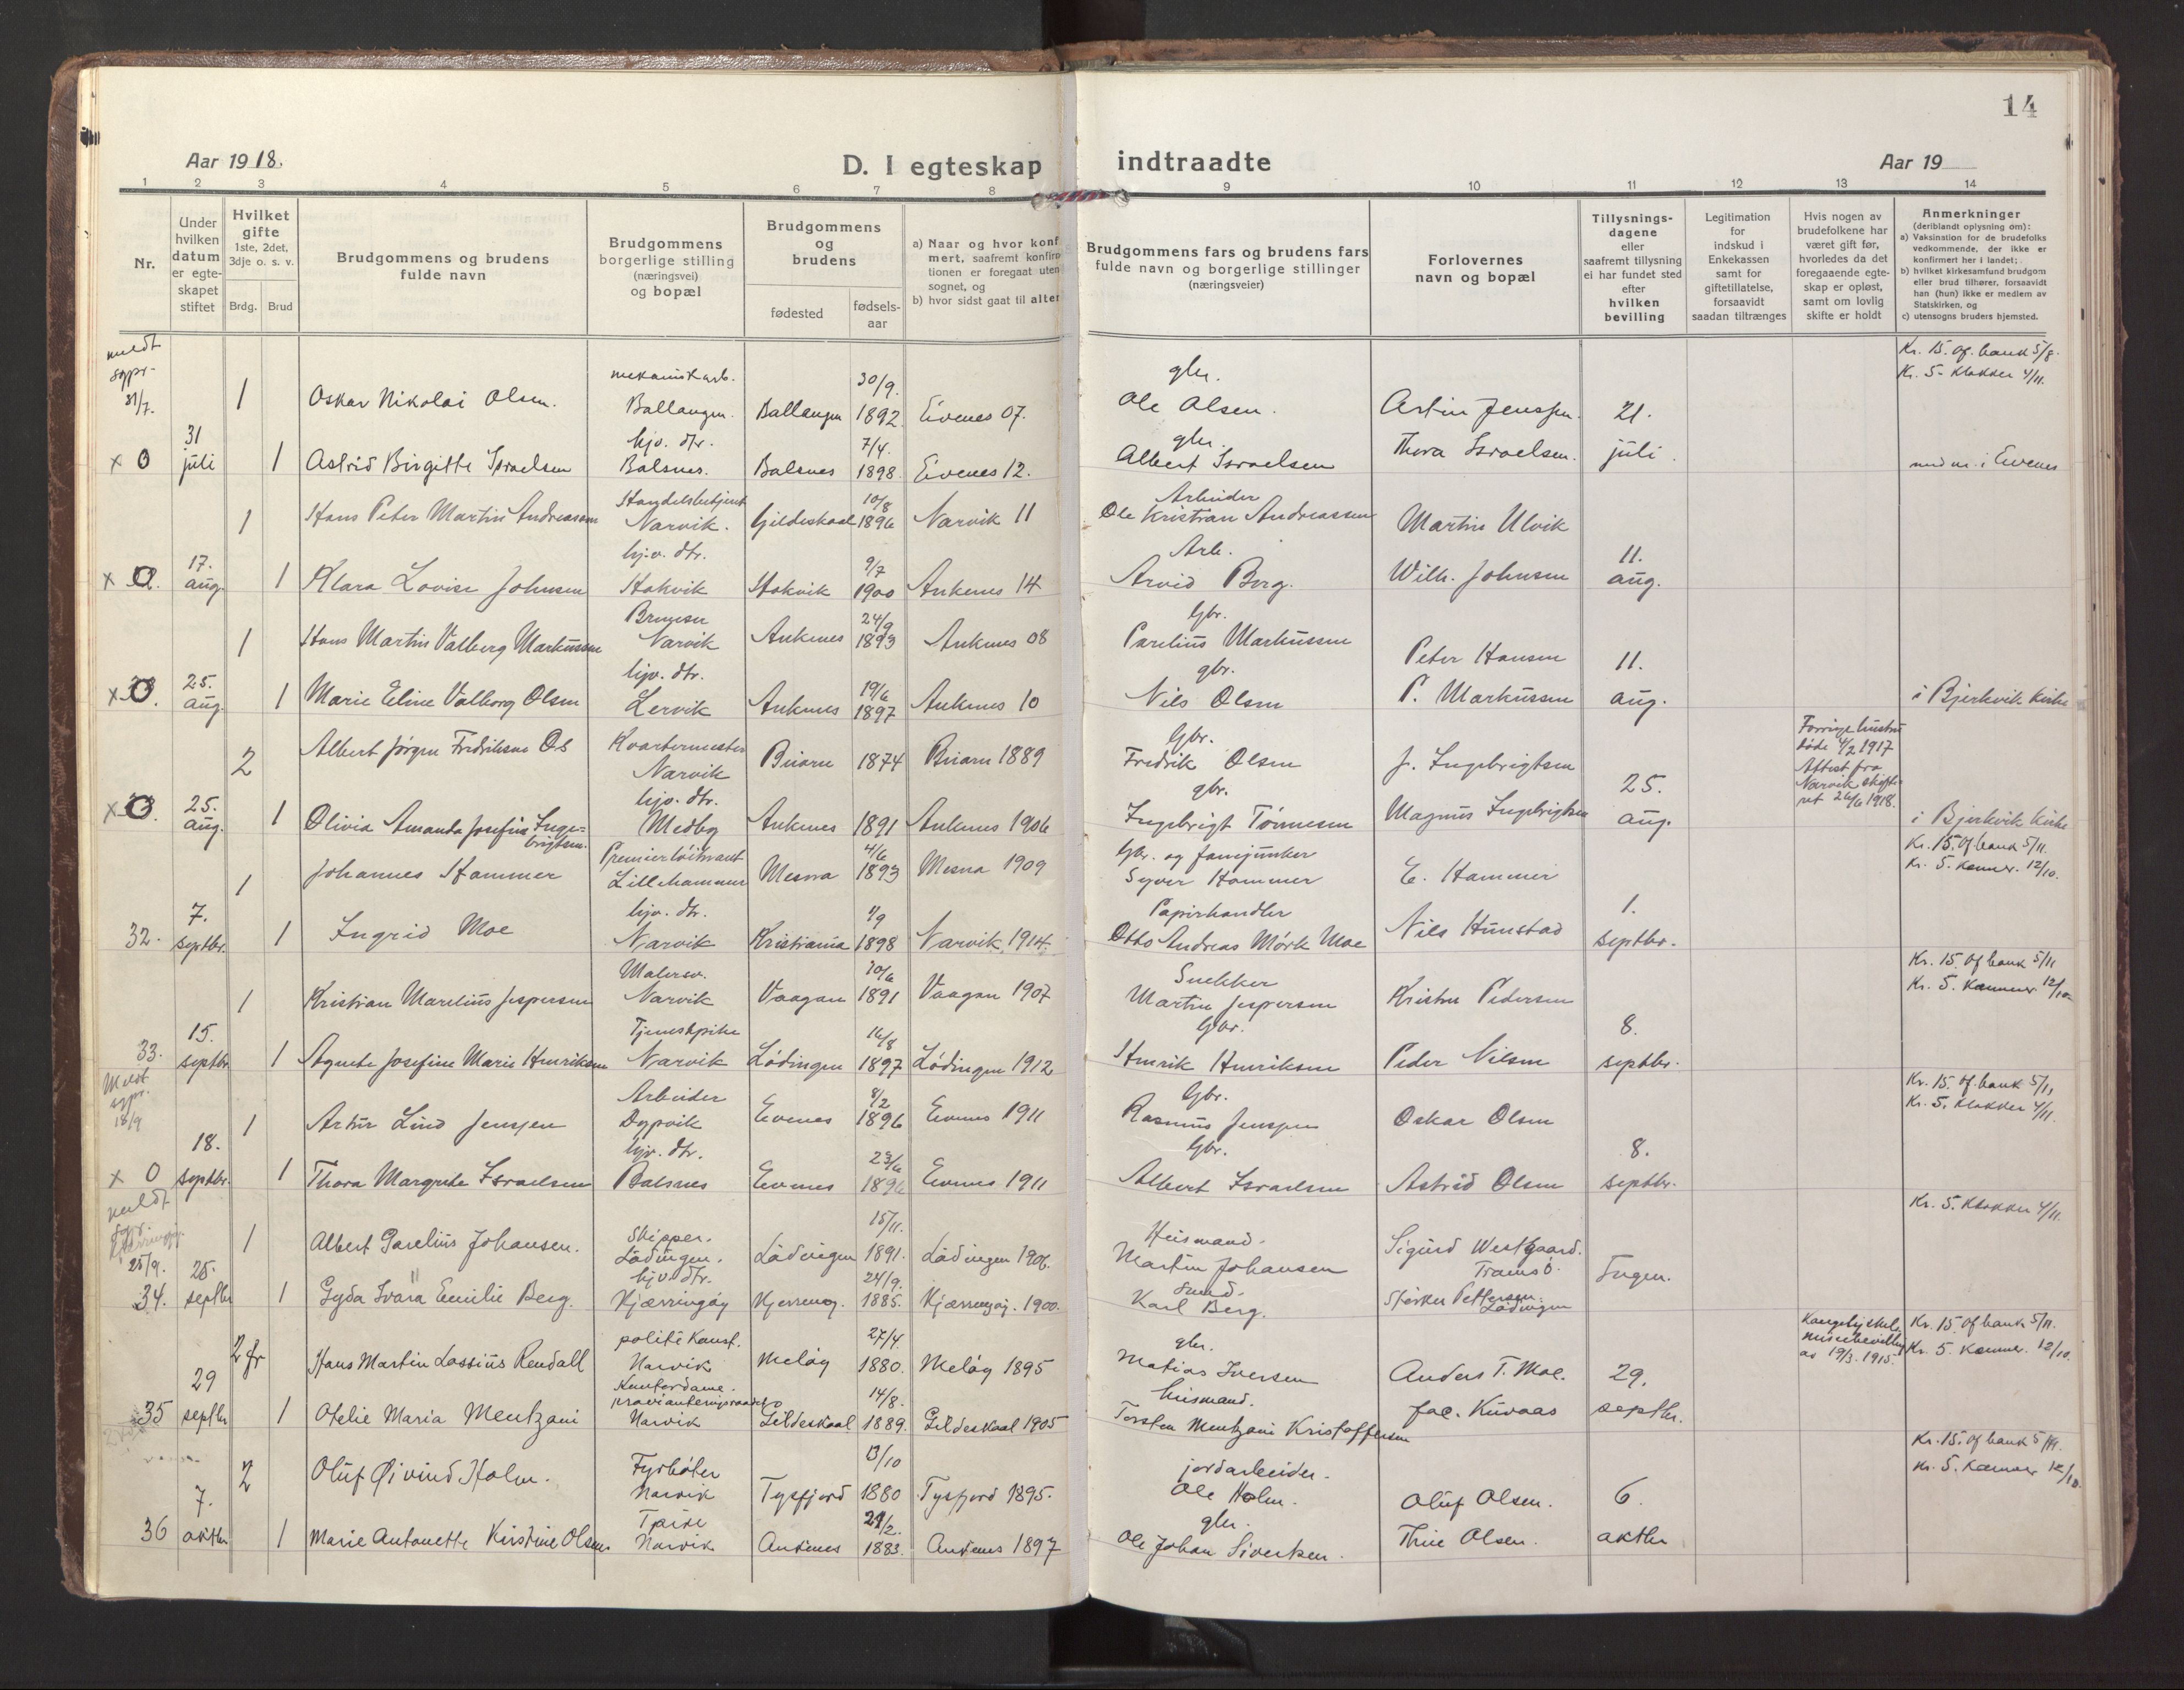 14
Aar 1918.
D. I egteskap indtraadte
Aar 19
1 2 3 4 5 6 7 8 9 10 11 12 13 14
Nr.
Under hvilken datum er egteskapet stiftet
Hvilket gifte 1ste, 2det, 3dje o. s. v.
Brdg. Brud
Brudgommens og brudens fulde navn
Brudgommens borgerlige stilling (næringsvei) og bopæl
Brudgommens og brudens
fødested
fødsels-aar
a) Naar og hvor konf
mert, saafremt konfirm
tionen er foregaat uten
sognet, og
b) hvor sidst gaat til alter
Brudgommens fars og brudens fars fulde navn og borgerlige stillinger (næringsveier)
Forlovernes navn og bopæl
Tillysnings-dagene eller saafremt tillysning ei har fundet sted efter hvilken bevilling
Legitimation for indskud i Enkekassen samt for giftetillatelse, forsaavidt saadan tiltrænges
Hvis nogen av brudefolkene har været gift før, hvorledes da det foregaaende egte-skap er opløst, samt om lovlig skifte er holdt
Anmerkninger (deriblandt oplysning om):
a) Vaksination for de brudefolks vedkommende, der ikke er konfirmert her i landet;
b) hvilket kirkesamfund brudgom eller brud tilhører, forsaavidt han (hun) ikke er medlem av Statskirken, og
c) utensogns bruders hjemsted.
meldt sgpr. 31/7. 1 Oskar Nikolai Olsen. mekanisk arb. Ballangen. Ballangen 30/9. 1892. Evenes 07. gbr. Ole Olsen. Jenssen. 21. Kr. 15. Of. bank 5/8. Kr. 5- Klokker 4/11.
x 0 31 juli 1 Astrid Birgitte Israelsen hjv. dtr. Balsnes. Balsnes 7/4. 1898. Evenes 12. gbr. Albert Israelsen Thora Israelsen. juli. i Evenes
1 Hans Peter Martin Andreassen Handelsbetjent Narvik. Gildeskaal 10/8 1896 Narvik 11 Arbeider Ole Kristian Andreassen Martin Ulvik 11.
x 0 17. aug. 1 Klara Lovise Johnsen hjv. dtr. Hakvik Hakvik 9/7 1900 Ankenes 14 Arb. Arvid Berg. Wilh. Johnsen aug.
1 Hans Martin Valberg Markussen Bremser Narvik Ankenes 24/9 1893 Ankenes 08 Gbr. Parelius Markussen Peter Hansen 11.
x 0. 25. aug. 1 Marie Eline Valborg Olsen hjv. dtr. Lervik Ankenes 19/6 1897 Ankenes 10 gbr. Nils Olsen P. Markussen aug. i Bjerkvik Kirke
2 Albert Jørgen Fredriksen Os Kvartermester Narvik Beiarn 1874 Beiarn 1889 Gbr. Fredrik Olsen J. Ingebrigtsen 25. Forrige hustru døde 4/2 1917 Attest fra Narvik skifteret 26/6 1918.
x 0. 25. aug. 1 Olivia Amanda Josefine Ingebrigtsen hjv. dtr. Medby Ankenes 1891 Ankenes 1906 gbr. Ingebrigt Tønnesen Magnus Ingebrigtsen aug. i Bjerkvik Kirke
1 Johannes Hammer Premierløitnant Lillehammer Mesna 4/6 1893 Mesna 1909 Gbr. og fanejunker Syver Hammer E. Hammer 1. Kr. 15. Of bank 5/11. Kr. 5. Kemner. 12/10.
32. 7. septbr. 1 Ingrid Moe hjv. dtr. Narvik Kristiania 1/9 1898 Narvik 1914. Papirhandler Otto Andreas Mørk Moe Nils Hunstad septbr.
1 Kristian Marelius Jespersen Malersv. Narvik Vaagan 30/6 1891 Vaagan 1907 Snekker Martin Jespersen Kristen Pedersen 8. Kr. 15. Of bank 5/11 Kr. 5. Kemner 12/10
33. 15. septbr. 1 Agnete Josefine Marie Henriksen Tjenestepike Narvik Lødingen 16/8 1897 Lødingen 1912 Gbr. Henrik Henriksen Peder Nilsen septbr.
Meldt sgpr. 18/9 1 Artur Lind Jenssen Arbeider Dypvik Evenes 8/2 1896 Evenes 1911 Gbr. Rasmus Jenssen Oskar Olsen 8. Kr. 15. Of. bank 5/11 Kr. 5. Klokker 4/11.
x 0 18. septbr. 1 Thora Margrete Israelsen hjv. dtr. Balsnes Evenes 23/6 1896 Evenes 1911 Gbr. Albert Israelsen Astrid Olsen septbr.
meldt sgpr. Kjerringøy. 25/9. 1 Albert Parelius Johansen. Skipper. Lødingen. Lødingen 15/11. 1891. Lødingen 1906. Husmand. Martin Johansen Sigurd Westgaard. Tromsø. Ingen. Kr. 5. Klokker 4/11.
34. 25. septbr 1 Gyda Svara Emilie Berg. hjv. dtr. Kjærringøy Kjerringø. 24/9. 1885. Kjærringøy. 1900. Karl Berg. Størker Pettersen. Lødingen
2 fr Hans Martin Lassius Rendall politi Konst. Narvik Meløy 27/4. 1880. Meløy 1895 gbr. Matias Iversen Anders T. Moe. 29. av 19/3. 1915. Kr. 15. Of bank 5/11. Kr. 5. Kemner. 12/10.
35 29 septbr 1 Otelie Maria Mentzoni Kontordame. provianteringsraadet Narvik Gildeskaal 14/8. 1889. Gildeskaal 1905 husmand. Torsten Mentzoni Kristoffersen Jac. Kuvaas septbr.
2 Oluf Øivind Holm. Fyrbøter Narvik Tysfjord 13/10 1880 Tysfjord 1895. jordarbeider. Ole Holm. Oluf Olsen. 6. Kr. 15. Of bank 5/11. Kr. 5. Kemner 12/10.
36 7. oktbr 1 Marie Antonette Kirstine Olsen Narvik Ankenes 21/2. 1883. Ankenes 1897 gbr. Ole Johan Sivertsen. Thine Olsen. oktbr